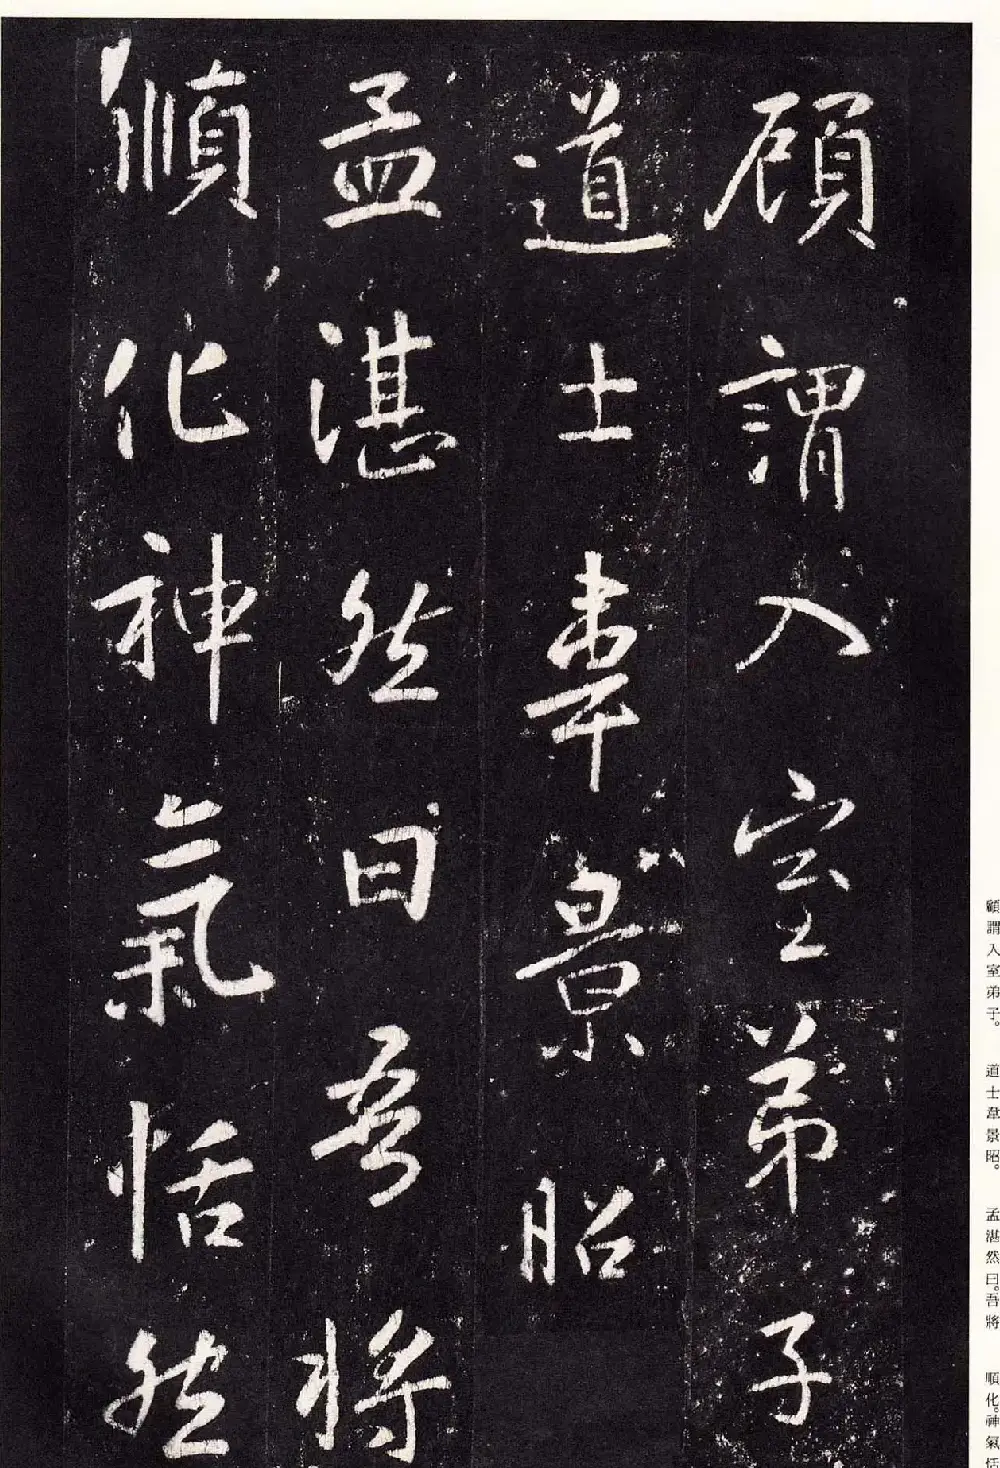 顧謂入室弟子
道士韋景昭
孟湛然曰吾將
順化神氣恬然
顧謂入室弟子。 道士韋景昭。 孟湛然曰。吾將 順化。神氣恬